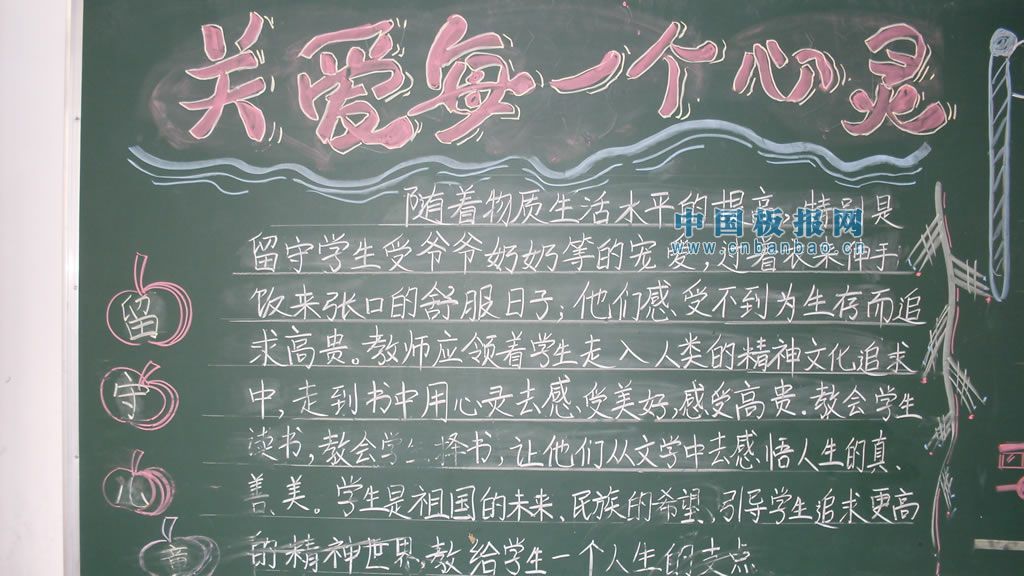 关爱每一个心灵
随着物质生活水平的提高,特别是
中国板报网
www.cnbanbao.cn
留守学生受爷爷奶奶等的宠爱,过着衣来伸手
饭来张口的舒服日子;他们感受不到为生存而追
求高贵。教师应领着学生走入人类的精神文化追求
中,走到书中用心灵去感受美好,感受高贵.教会学生
读书,教会学生择书,让他们从文学中去感悟人生的真、
善、美。学生是祖国的未来、民族的希望、引导学生追求更高
的精神世界,教给学生一个人生的支点
留
守
心
章